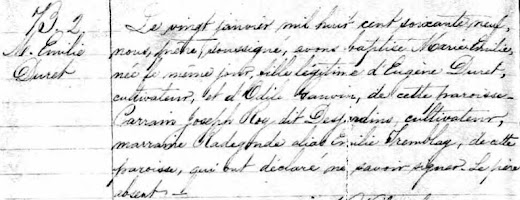 B. 2
M. Emilie
Duret
Le vingt janvier mil huit cent soixante neuf,
nous, prêtre, soussigné, avons baptisé Marie Emilie,
née le même jour, fille légitime d'Eugène Duret,
cultivateur, et d'Odile Gauvin, de cette paroisse.
Parrain Joseph Roy dit Desjardins, cultivateur,
marraine Radegonde alias Emilie Tremblay, de cette
paroisse, qui ont déclaré ne savoir signer. Le père
absent.